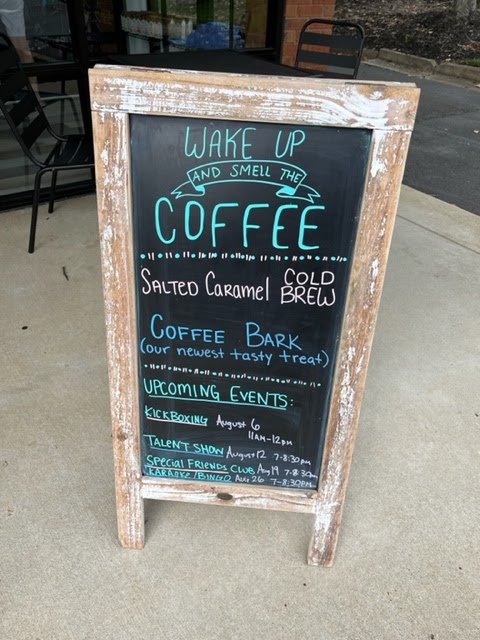 WAKE UP
AND SMELL THE
COFFEE
SALTED CARAMEL COLD BREW
COFFEE BARK
(our newest tasty treat)
UPCOMING EVENTS:
KICKBOXING August 6
11AM-12pm
TALENT SHOW August 12 7-8:30pm
SPECIAL FRIENDS CLUB Aug 19 7-8:30pm
KARAOKE/BINGO Aug 26 7-8:30pm